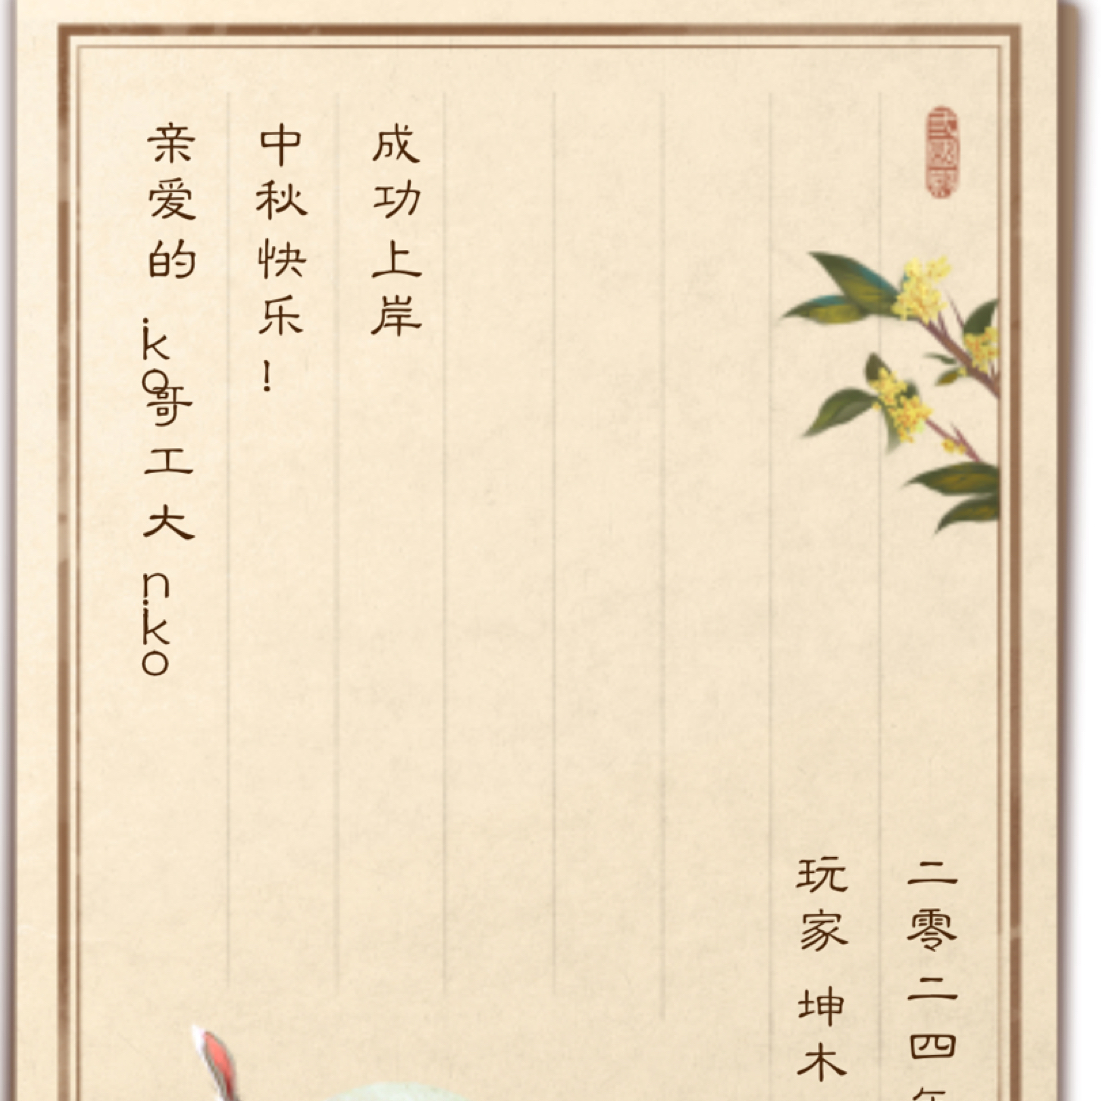 亲爱的 iko哥工大 niko
中秋快乐!
成功上岸
玩家 坤木
二零二四年